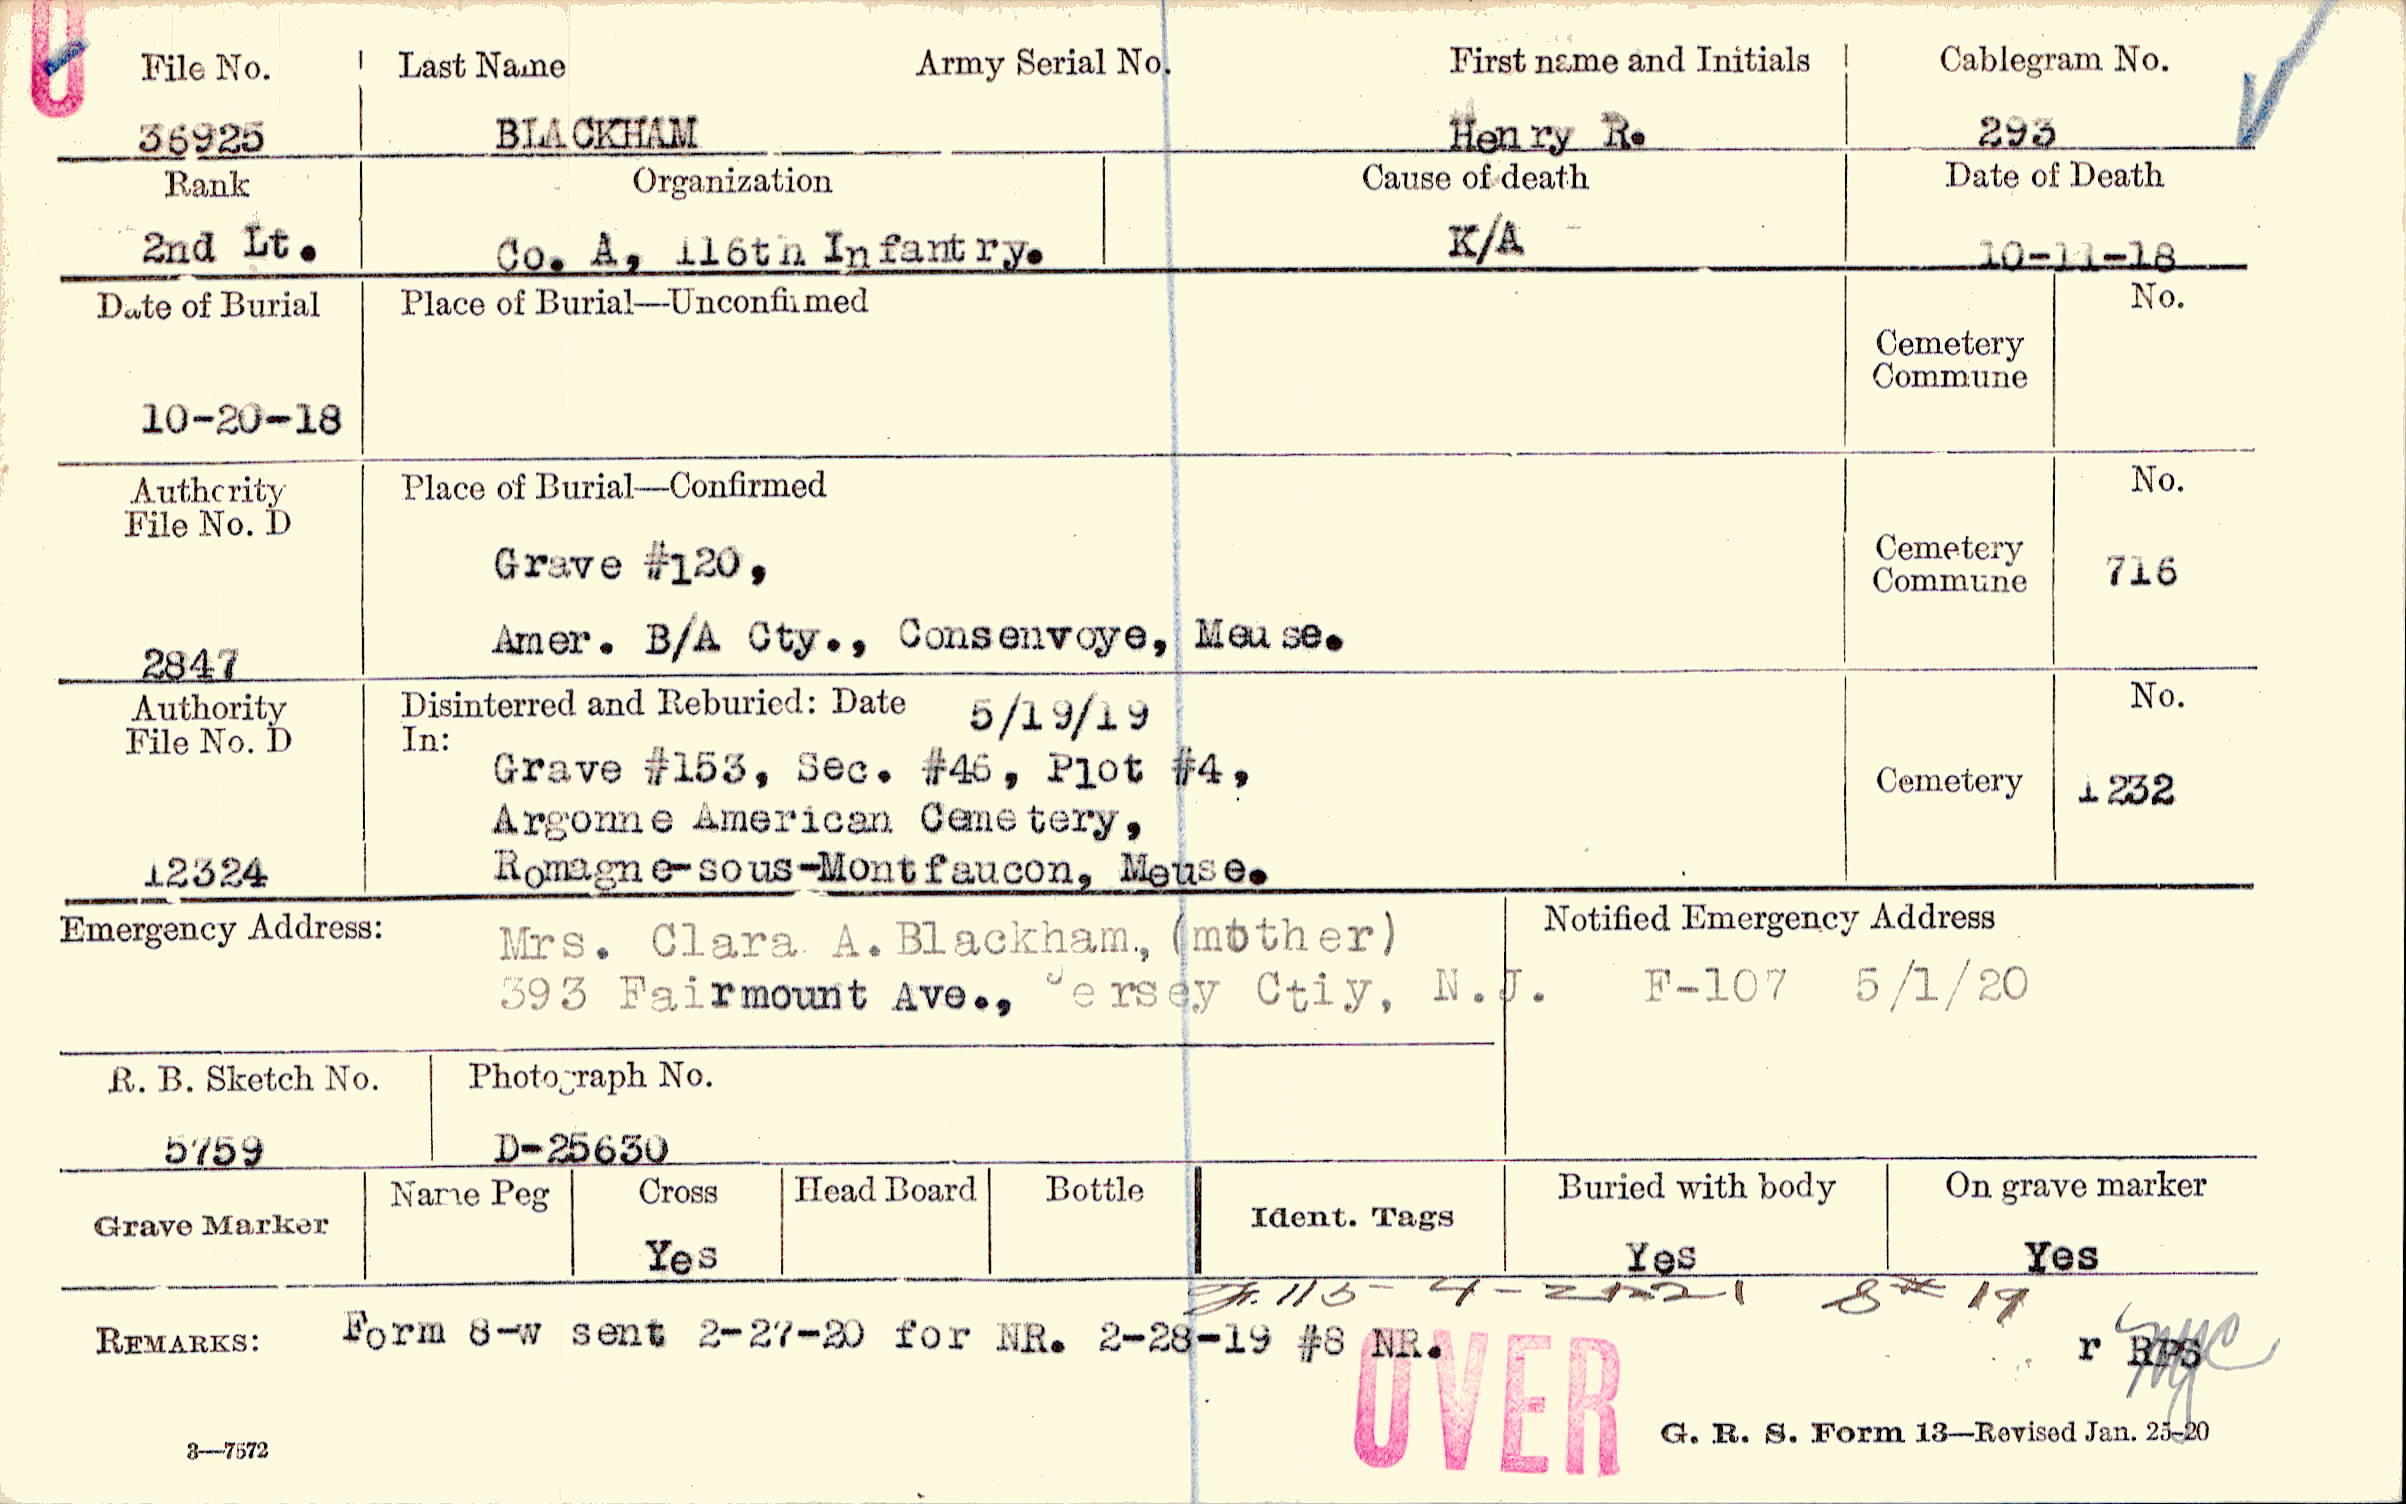 File No. Last Name Army Serial No. First name and Initials Cablegram No.
36925 BLACKHAM Henry R. 293
Rank Organization Cause of death Date of Death
2nd Lt. Co. A, 116th Infantry. K/A 10-11-18
Date of Burial Place of Burial—Unconfirmed No.
Cemetery
Commune
10-20-18
Authority Place of Burial—Confirmed No.
File No. D
Grave #120, Cemetery
Commune 716
Amer. B/A Cty., Consenvoye, Meuse.
2847
Authority Disinterred and Reburied: Date 5/19/19 No.
File No. D In:
Grave #153, Sec. #46, Plot #4, Cemetery 1232
Argonne American Cemetery,
12324 Romagne-sous-Montfaucon, Meuse.
Emergency Address: Mrs. Clara A. Blackham, (mother) Notified Emergency Address
393 Fairmount Ave., Jersey Ctiy, N.J. F-107 5/1/20
R. B. Sketch No. Photograph No.
5759 D-25630
Grave Marker Name Peg Cross Head Board Bottle Ident. Tags Buried with body On grave marker
Yes Yes Yes
8# 19
REMARKS: Form 8-W sent 2-27-20 for NR. 2-28-19 #8 NR. r RPS
OVER
3—7572 G. R. S. Form 13—Revised Jan. 25-20